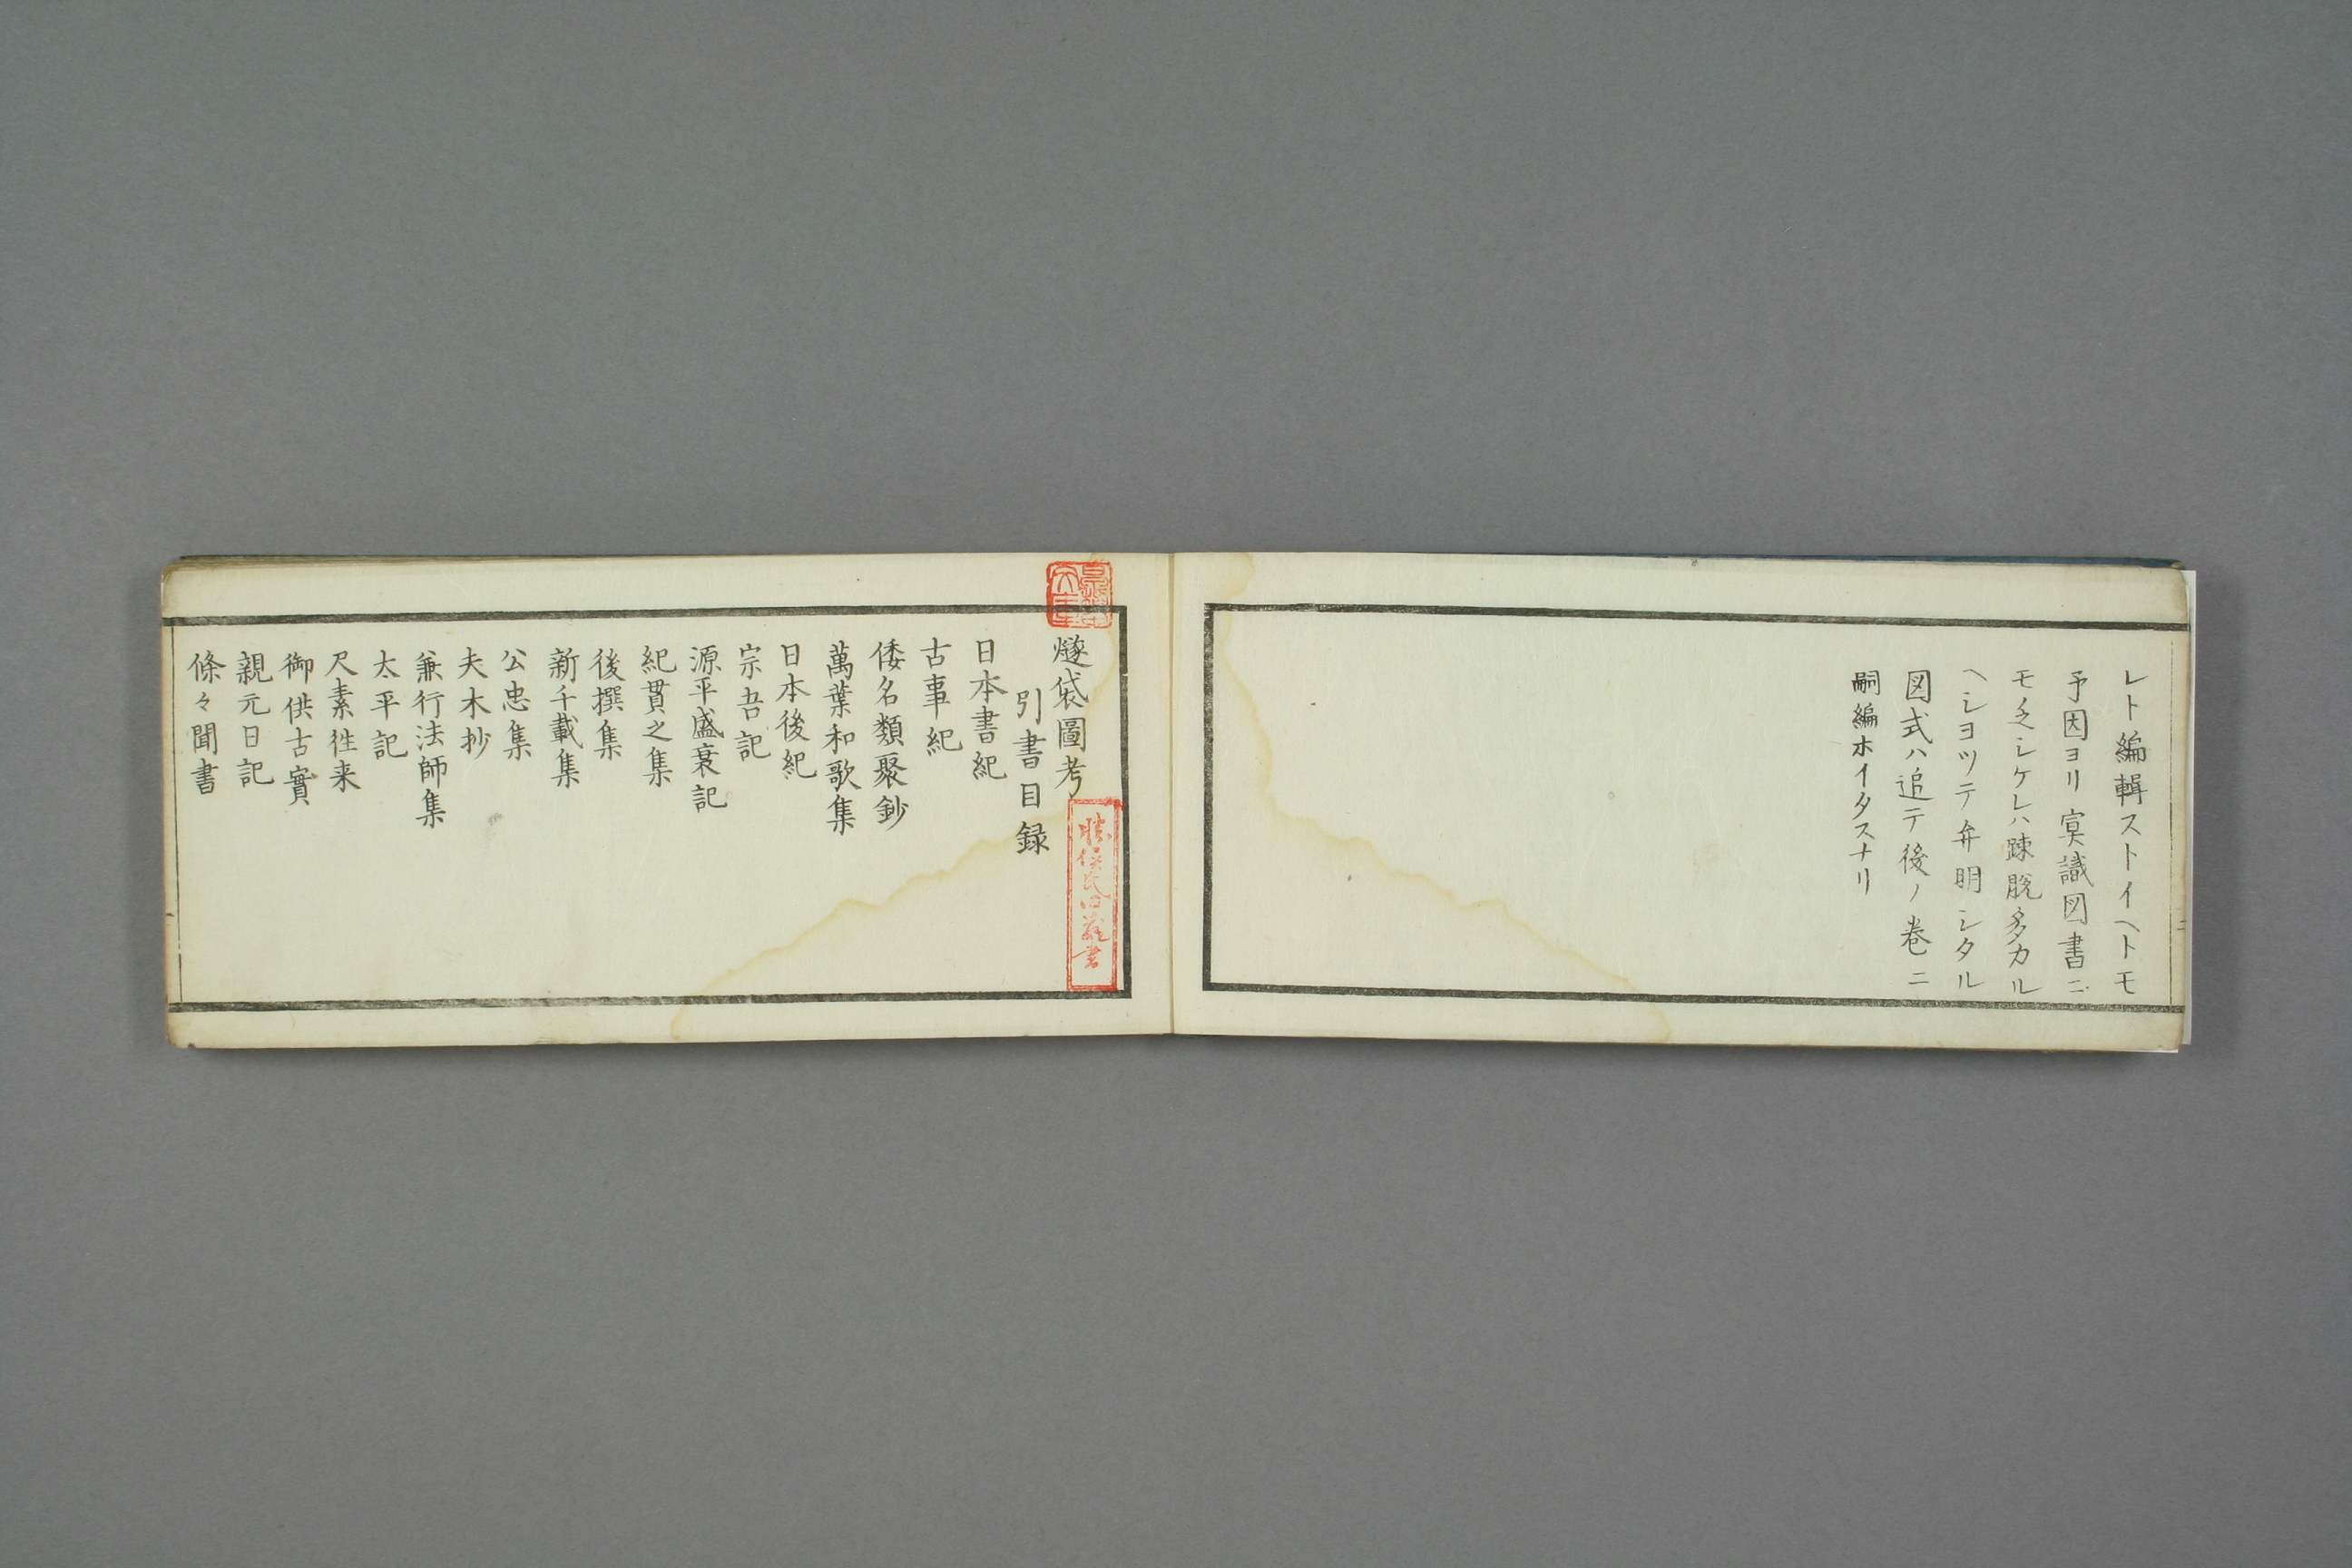 レト編輯ストイヘトモ
予因ヨリ寡識図書ニ
モ乏シケレハ踈脱多カル
ヘシヨツテ弁明シタル
図式ハ追テ後ノ巻ニ
嗣編ホイタスナリ
燧袋圖考
引書目録
日本書紀
古事紀
倭名類聚鈔
萬葉和歌集
日本後紀
宗吾記
源平盛衰記
紀貫之集
後撰集
新千載集
公忠集
夫木抄
兼行法師集
太平記
尺素徃来
御供古實
親元日記
條々聞書